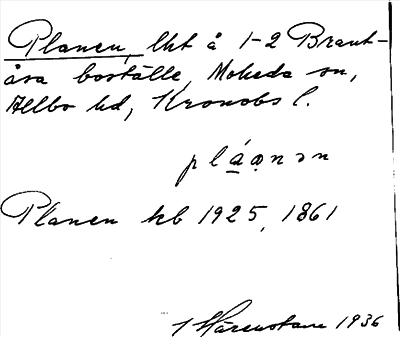 Planen, lht å 1-2 Braut-
åsa boställe, Moheda sn,
Allbo hd, Kronobs l.
pláọnən
Planen kb 1925, 1861
1936